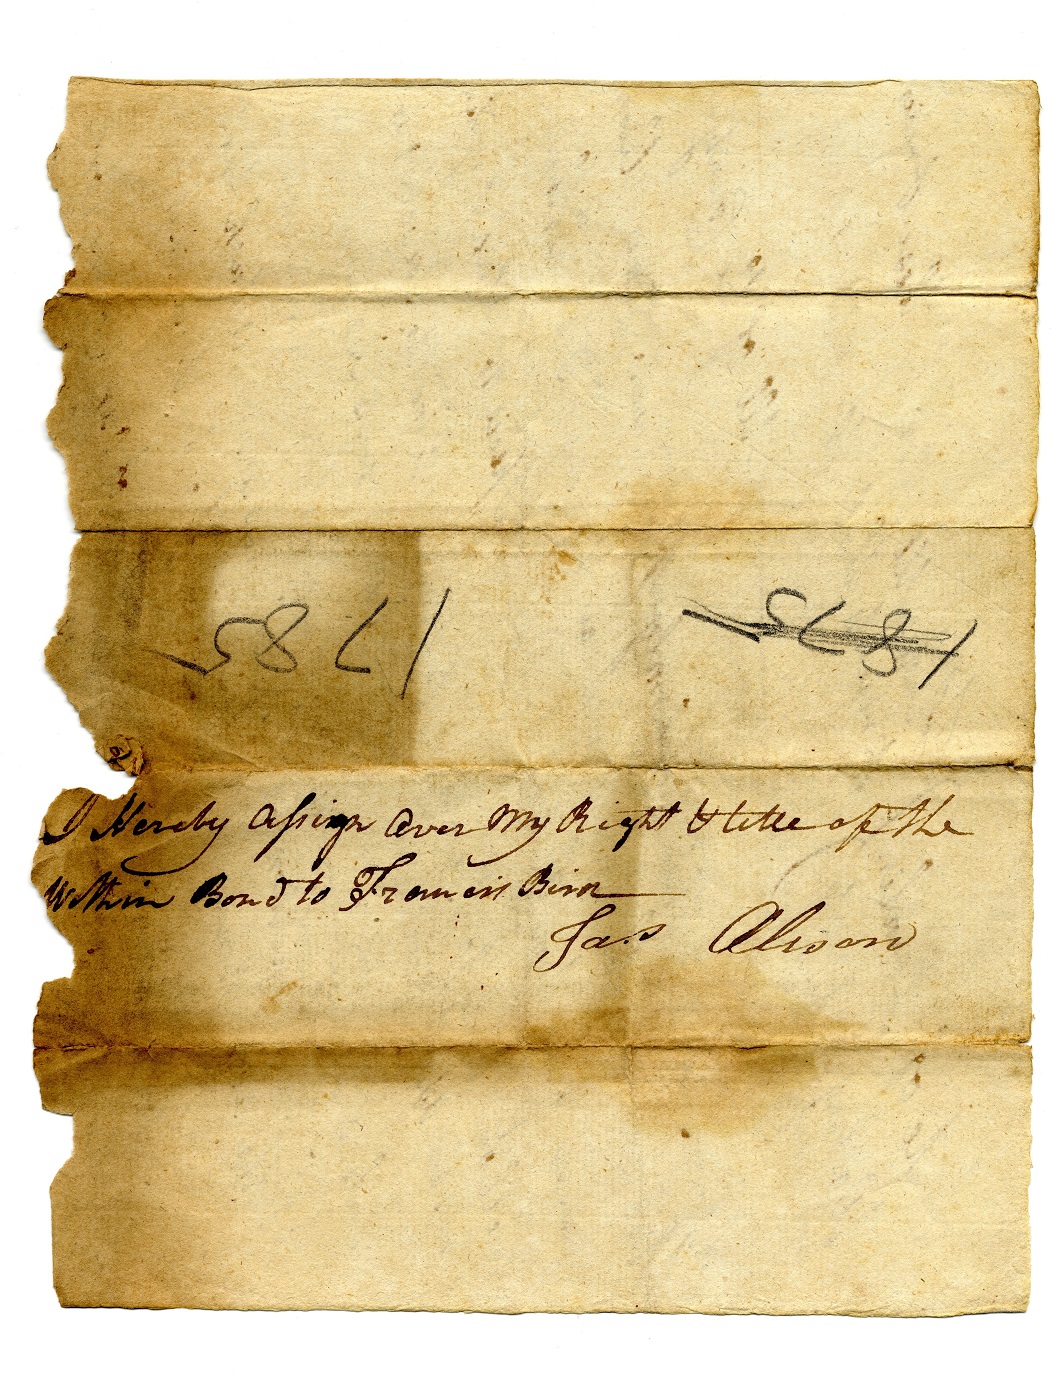 1785 1875
I Hereby assign over My Right & title of the
Within Bond to Francis
Jas Alison